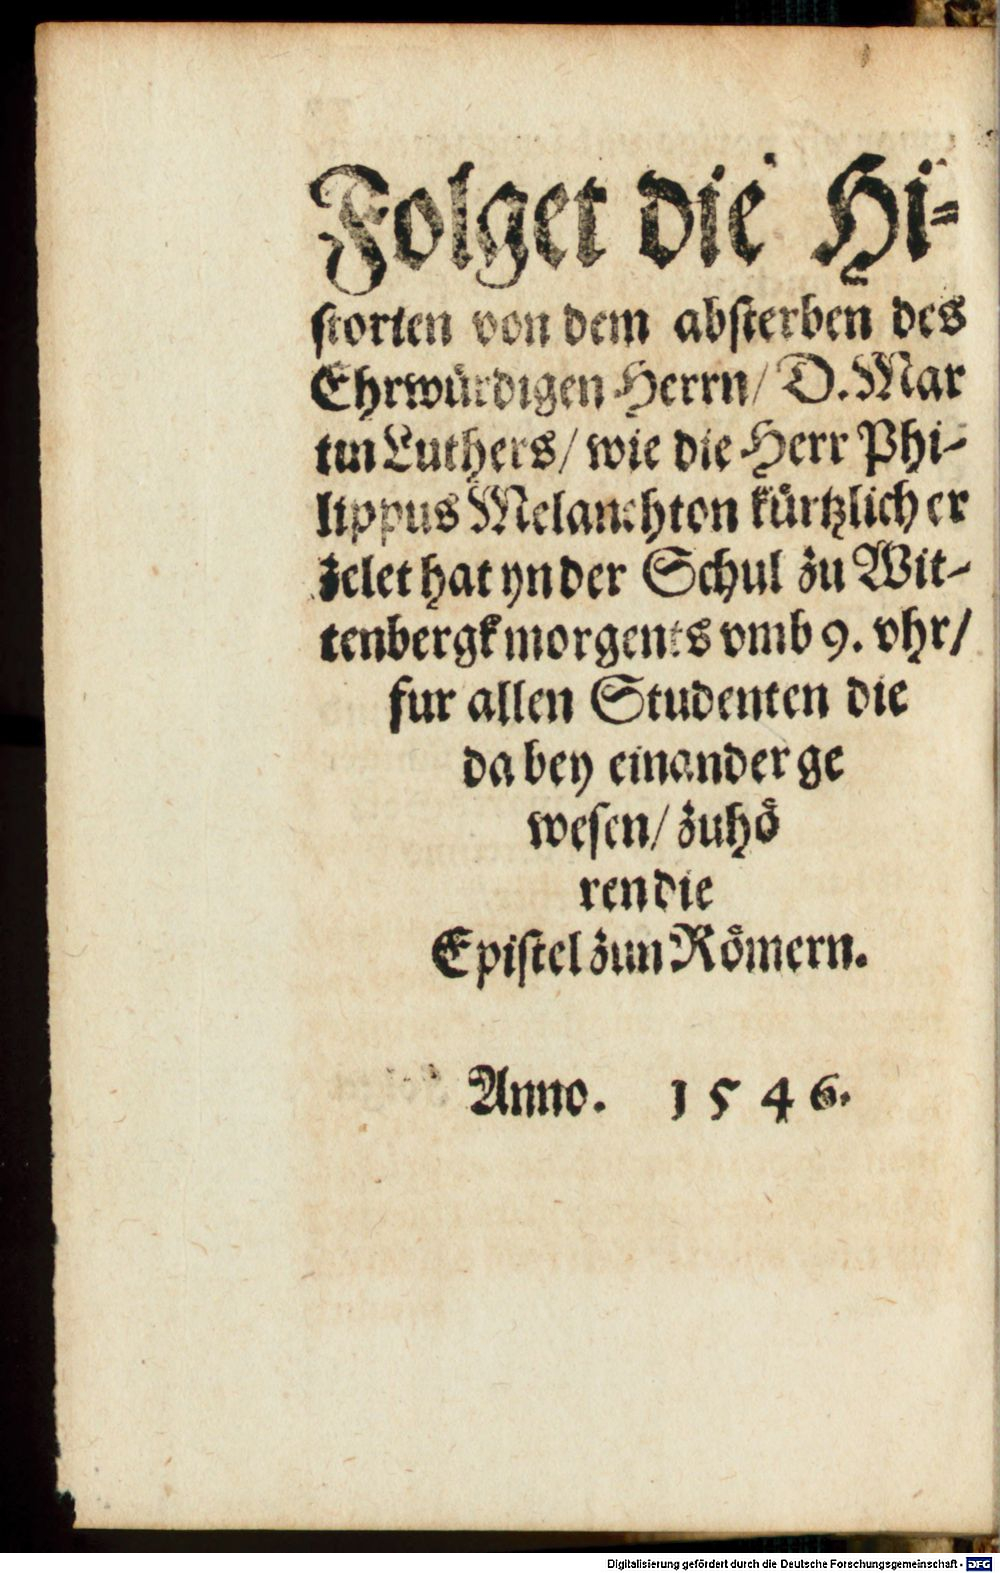 Folget die Hi-
storien von dem absterben des
Ehrwürdigen Herrn/ D. Mar
tin Luthers/ wie die Herr Phi-
lippus Melanchton kürtzlich er
zelet hat yn der Schul zu Wit-
tenbergk morgents vmb 9. vhr/
fur allen Studenten die
da bey einander ge
wesen/ zuhö
ren die
Epistel zun Römern.
Anno. 1546.
Digitalisierung gefördert durch die Deutsche Forschungsgemeinschaft - DFG